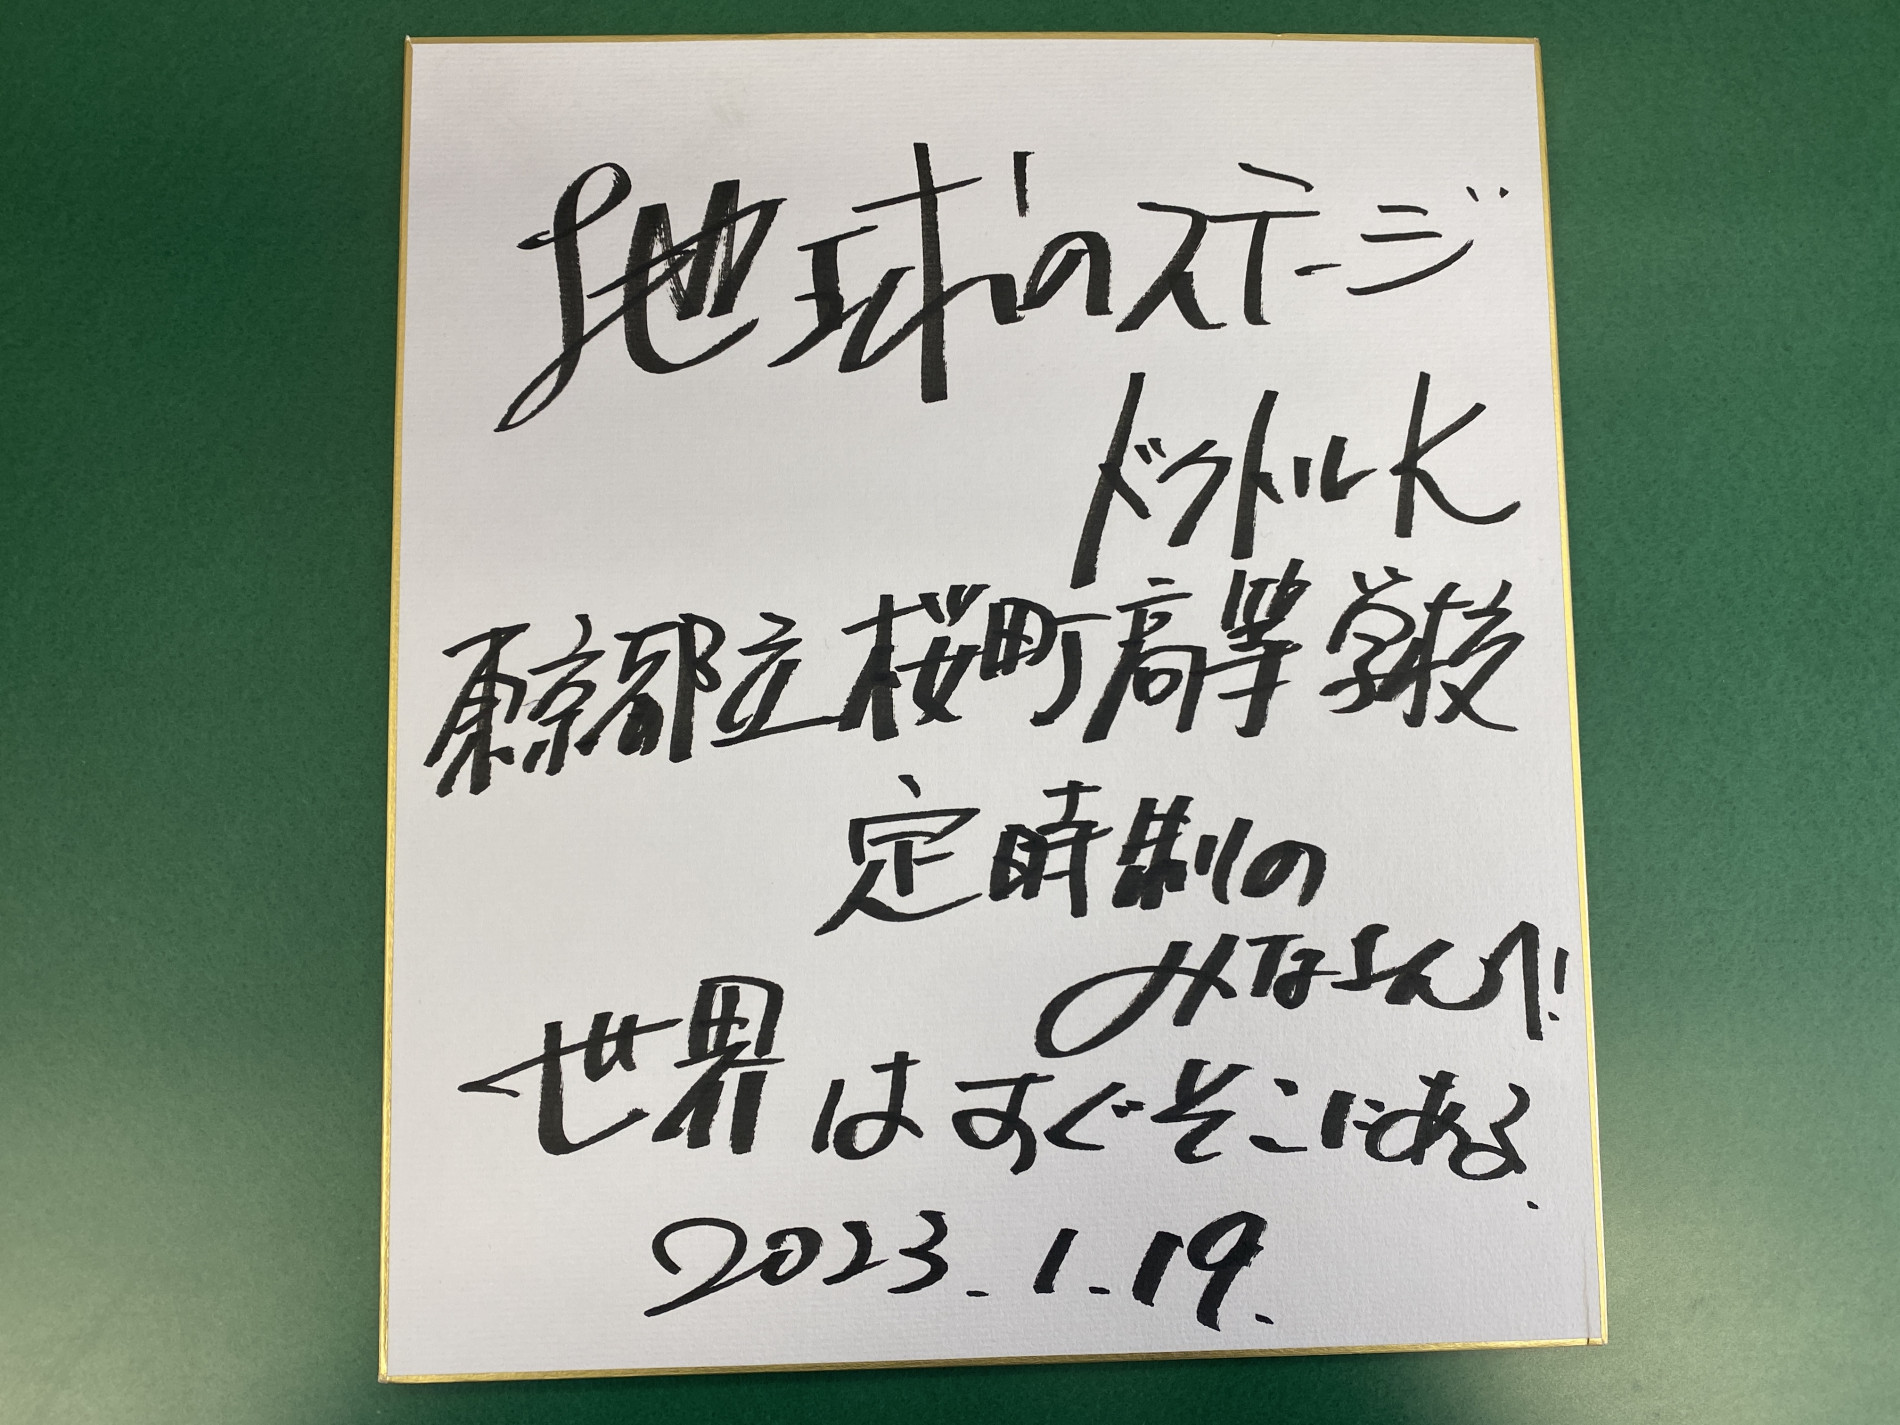 地球のステージ
ドクトルK
東京都立桜町高等学校
定時制の
みなさんへ!
世界はすぐそこにある.
2023.1.19.